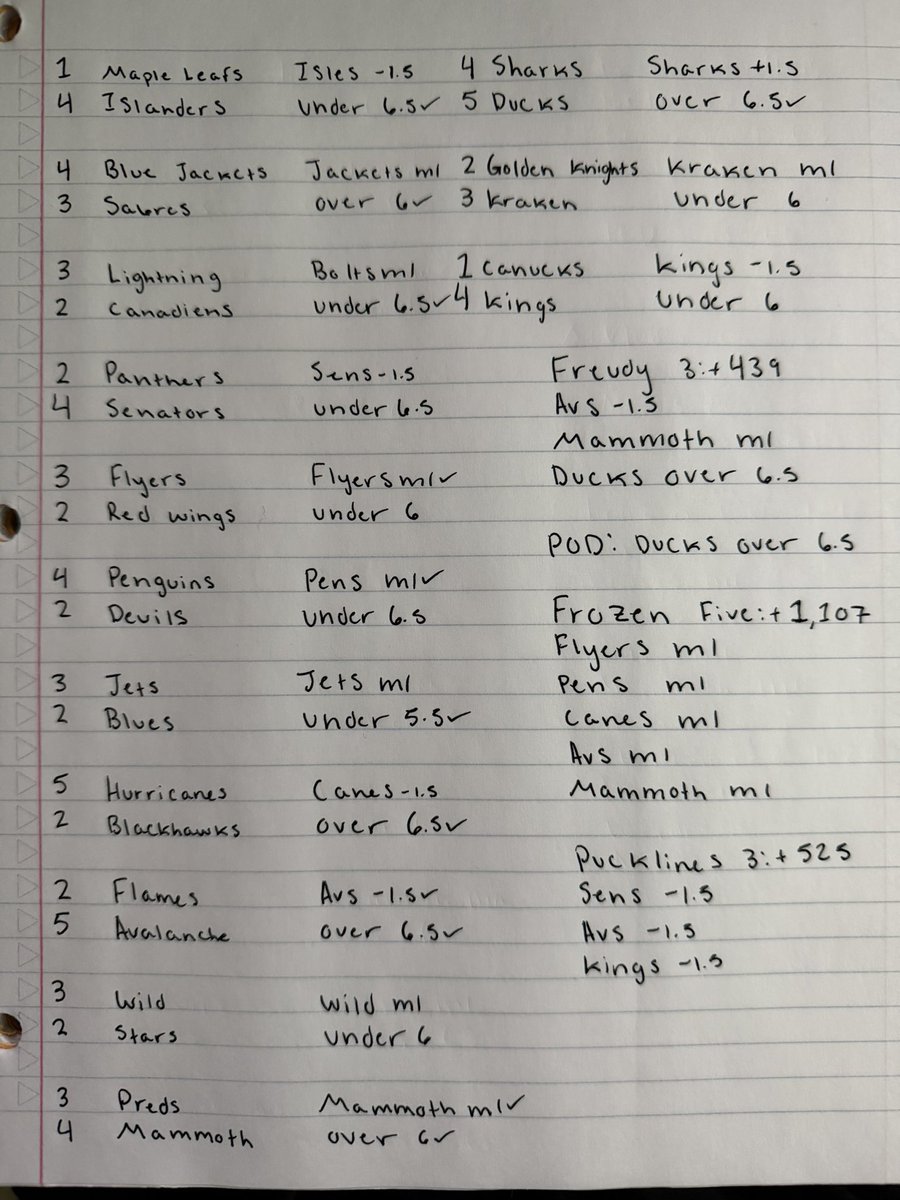 1 Maple Leafs Isles -1.5 4 Sharks Sharks +1.5
4 Islanders under 6.5✓ 5 Ducks over 6.5✓
4 Blue Jackets Jackets ml 2 Golden Knights Kraken ml
3 Sabres over 6✓ 3 Kraken under 6
3 Lightning Bolts ml 1 Canucks Kings -1.5
2 Canadiens under 6.5✓ 4 Kings under 6
2 Panthers Sens -1.5 Freudy 3:+439
4 Senators under 6.5 Avs -1.5
Mammoth ml
3 Flyers Flyers ml✓ Ducks over 6.5
2 Red wings under 6
POD: Ducks over 6.5
4 Penguins Pens ml✓
2 Devils under 6.5 Frozen Five:+1,107
Flyers ml
3 Jets Jets ml Pens ml
2 Blues under 5.5✓ Canes ml
Avs ml
5 Hurricanes Canes -1.5 Mammoth ml
2 Blackhawks over 6.5✓
Pucklines 3:+525
2 Flames Avs -1.5✓ Sens -1.5
5 Avalanche over 6.5✓ Avs -1.5
Kings -1.5
3 Wild Wild ml
2 Stars under 6
3 Preds Mammoth ml✓
4 Mammoth over 6✓